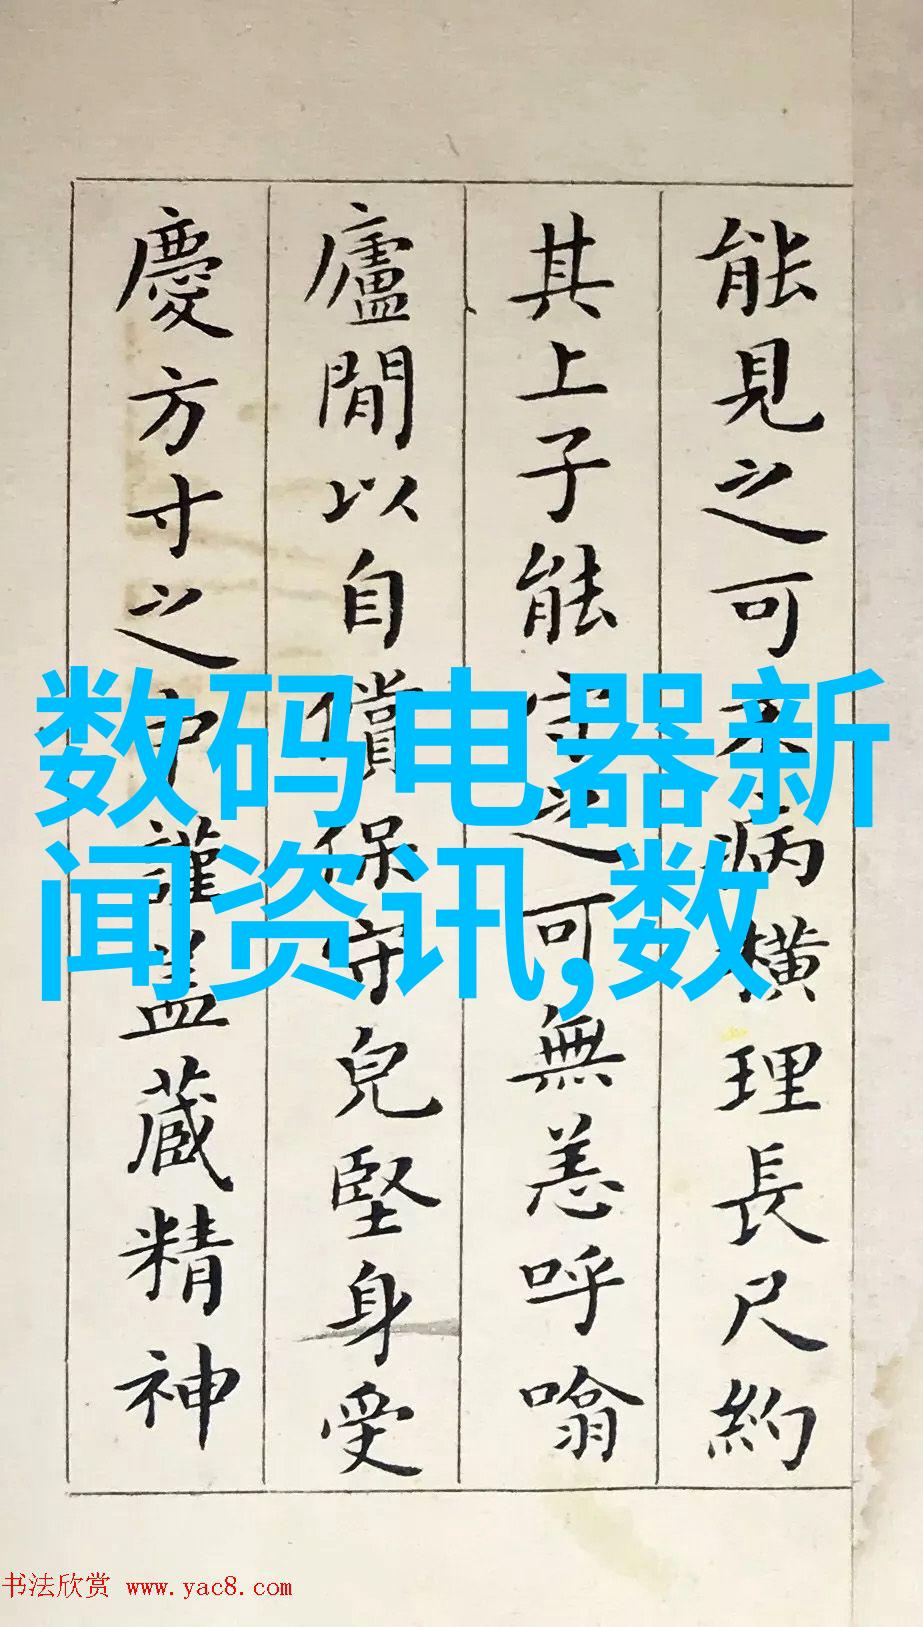 能見之可不病橫理長尺約
其上子能守之可無恙呼噏
廬間以自償保守皃堅身受
慶方寸之中謹蓋蔵精神
数码电器新
闻资讯,数
书法欣赏 www.yac8.com